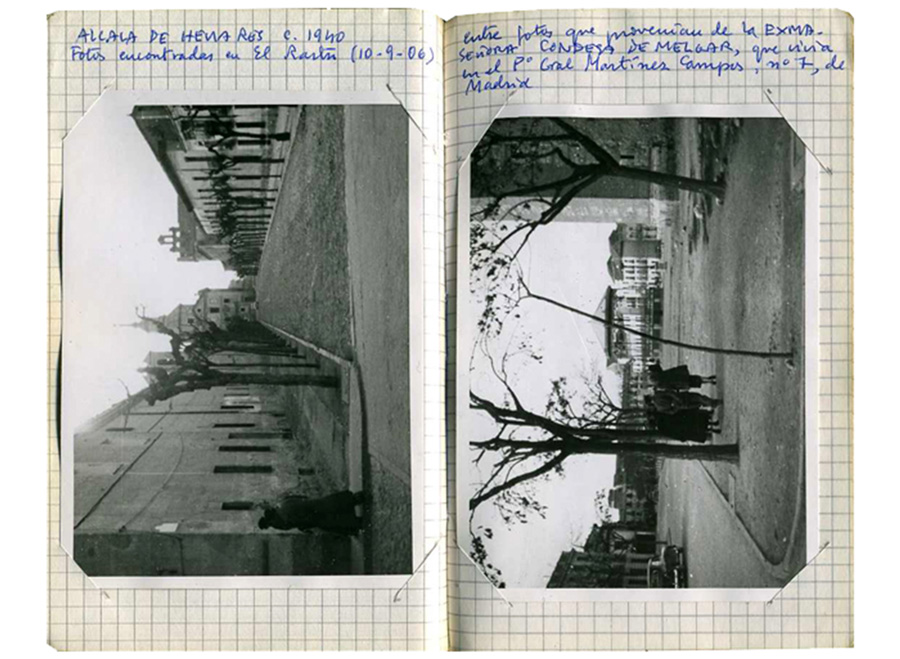 ALCALA DE HENARES c. 1940
Fotos encontradas en El Rastro (10-9-06)
entre fotos que provenían de la EXMA.
SEÑORA CONDESA DE MELGAR, que vivía
en el Pº Gral Martínez Campos, nº 7, de
Madrid